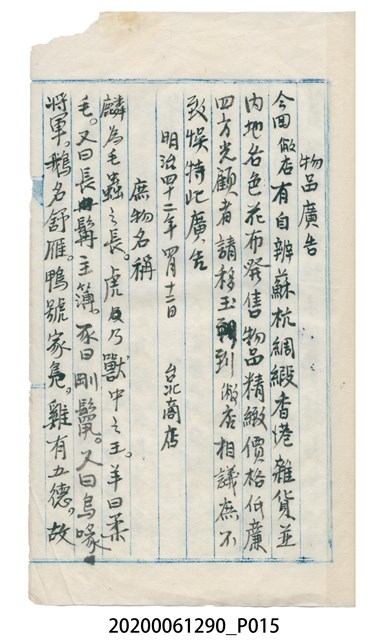 物品廣告
今回敝店有自辦蘇杭綢緞香港雜貨並
內地各色花布發售物品精緻價格低廉
四方光顧者請移玉到敝店相議庶不
致悞特此廣告
明治四十二年 四月十二日 台北商店
庶物名稱
麟為毛蟲之長。虎乃獸中之王。羊曰柔
毛。又曰長髯主簿。豕曰剛鬣。又曰烏喙
將軍。鵝名舒雁。鴨號家鳧。雞有五德。故
20200061290_P015